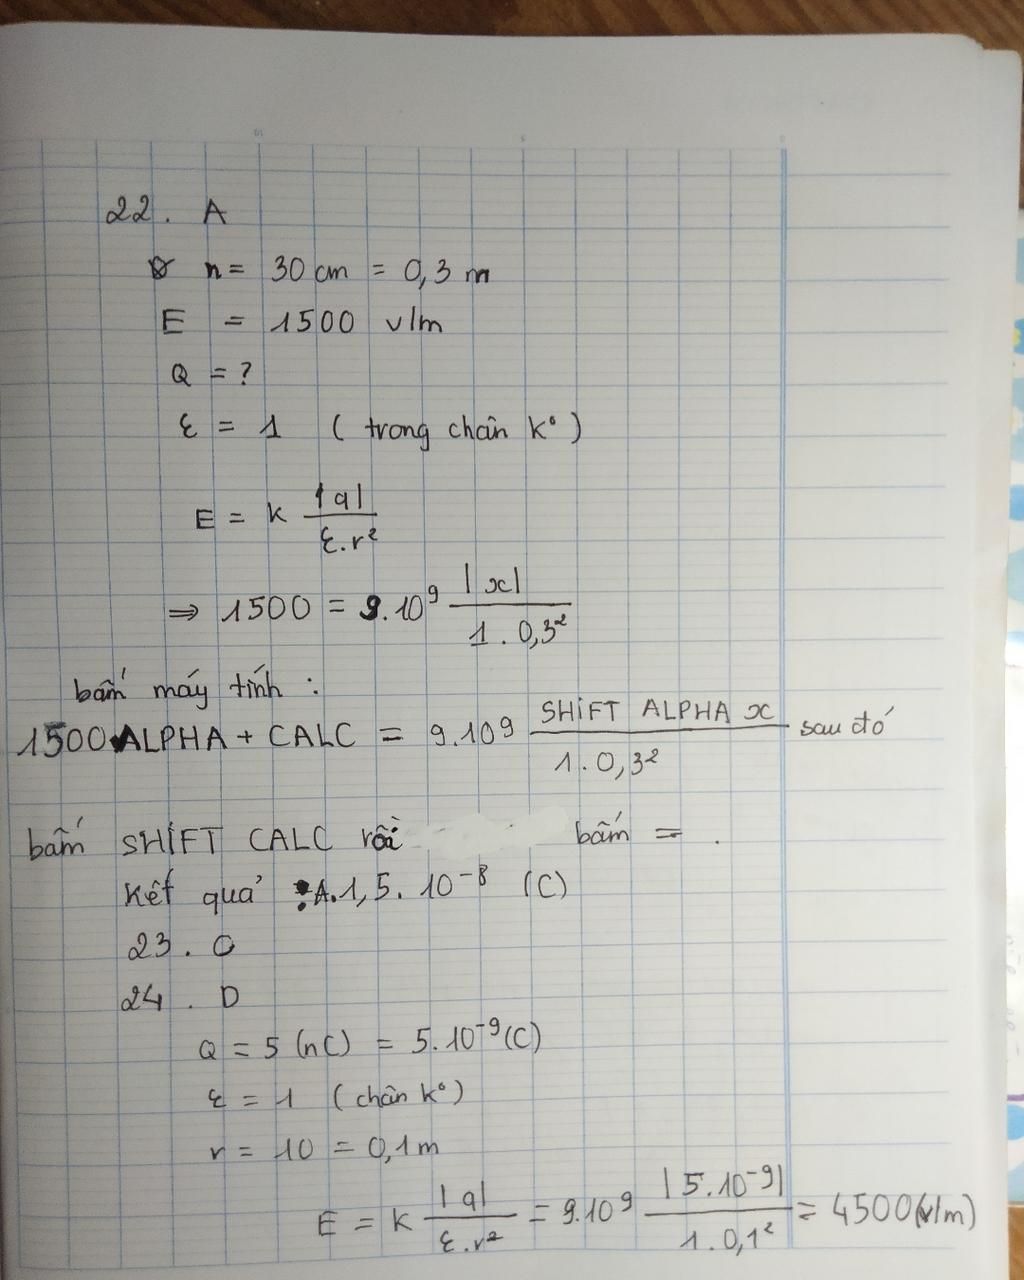 22. A
r = 30 cm = 0,3 m
E = 1500 v/m
Q = ?
ε = 1 ( trong chân k° )
E = k |q| / ε.r²
⇒ 1500 = 9.10⁹ |x| / 1.0,3²
bấm máy tính :
1500 ALPHA + CALC = 9.10⁹ SHIFT ALPHA x / 1.0,3² sau đó
bấm SHIFT CALC rồi bấm = .
kết quả : A. 1,5. 10⁻⁸ (C)
23. C
24. D
Q = 5 (nC) = 5.10⁻⁹ (C)
ε = 1 ( chân k° )
r = 10 = 0,1 m
E = k |q| / ε.r² = 9.10⁹ |5.10⁻⁹| / 1.0,1² = 4500 (v/m)